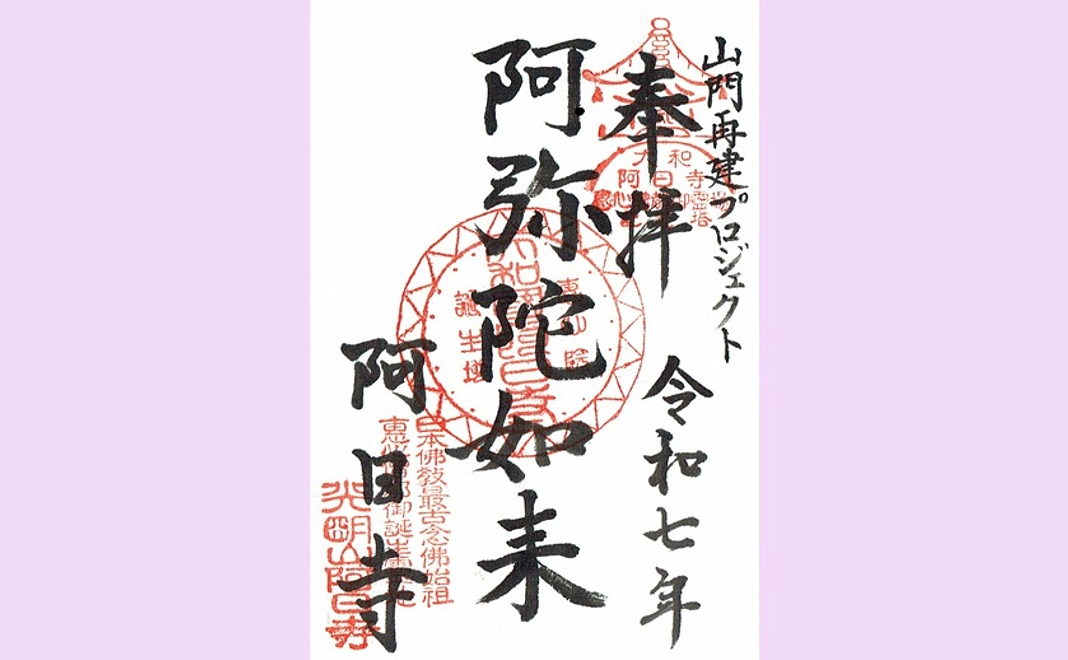 山門再建プロジェクト
奉拝
令和七年
阿弥陀如来
阿日寺
大和
阿日寺
誕生
日本佛教最古念佛始祖
光明山阿日寺